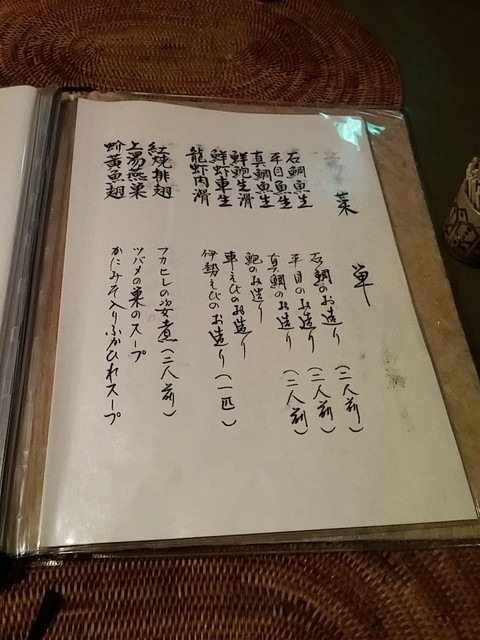 菜
単
石鯛魚生
石鯛のお造り(二人前)
平目魚生
平目のお造り(二人前)
真鯛魚生
真鯛のお造り(二人前)
鮮鮑生滑
鮑のお造り
鮮蝦車生
車えびのお造り
龍虾肉滑
伊勢えびのお造り(一匹)
紅焼排翅
フカヒレの姿煮(二人前)
上湯燕巣
ツバメの巣のスープ
蚧黄魚翅
かにみそ入りふかひれスープ